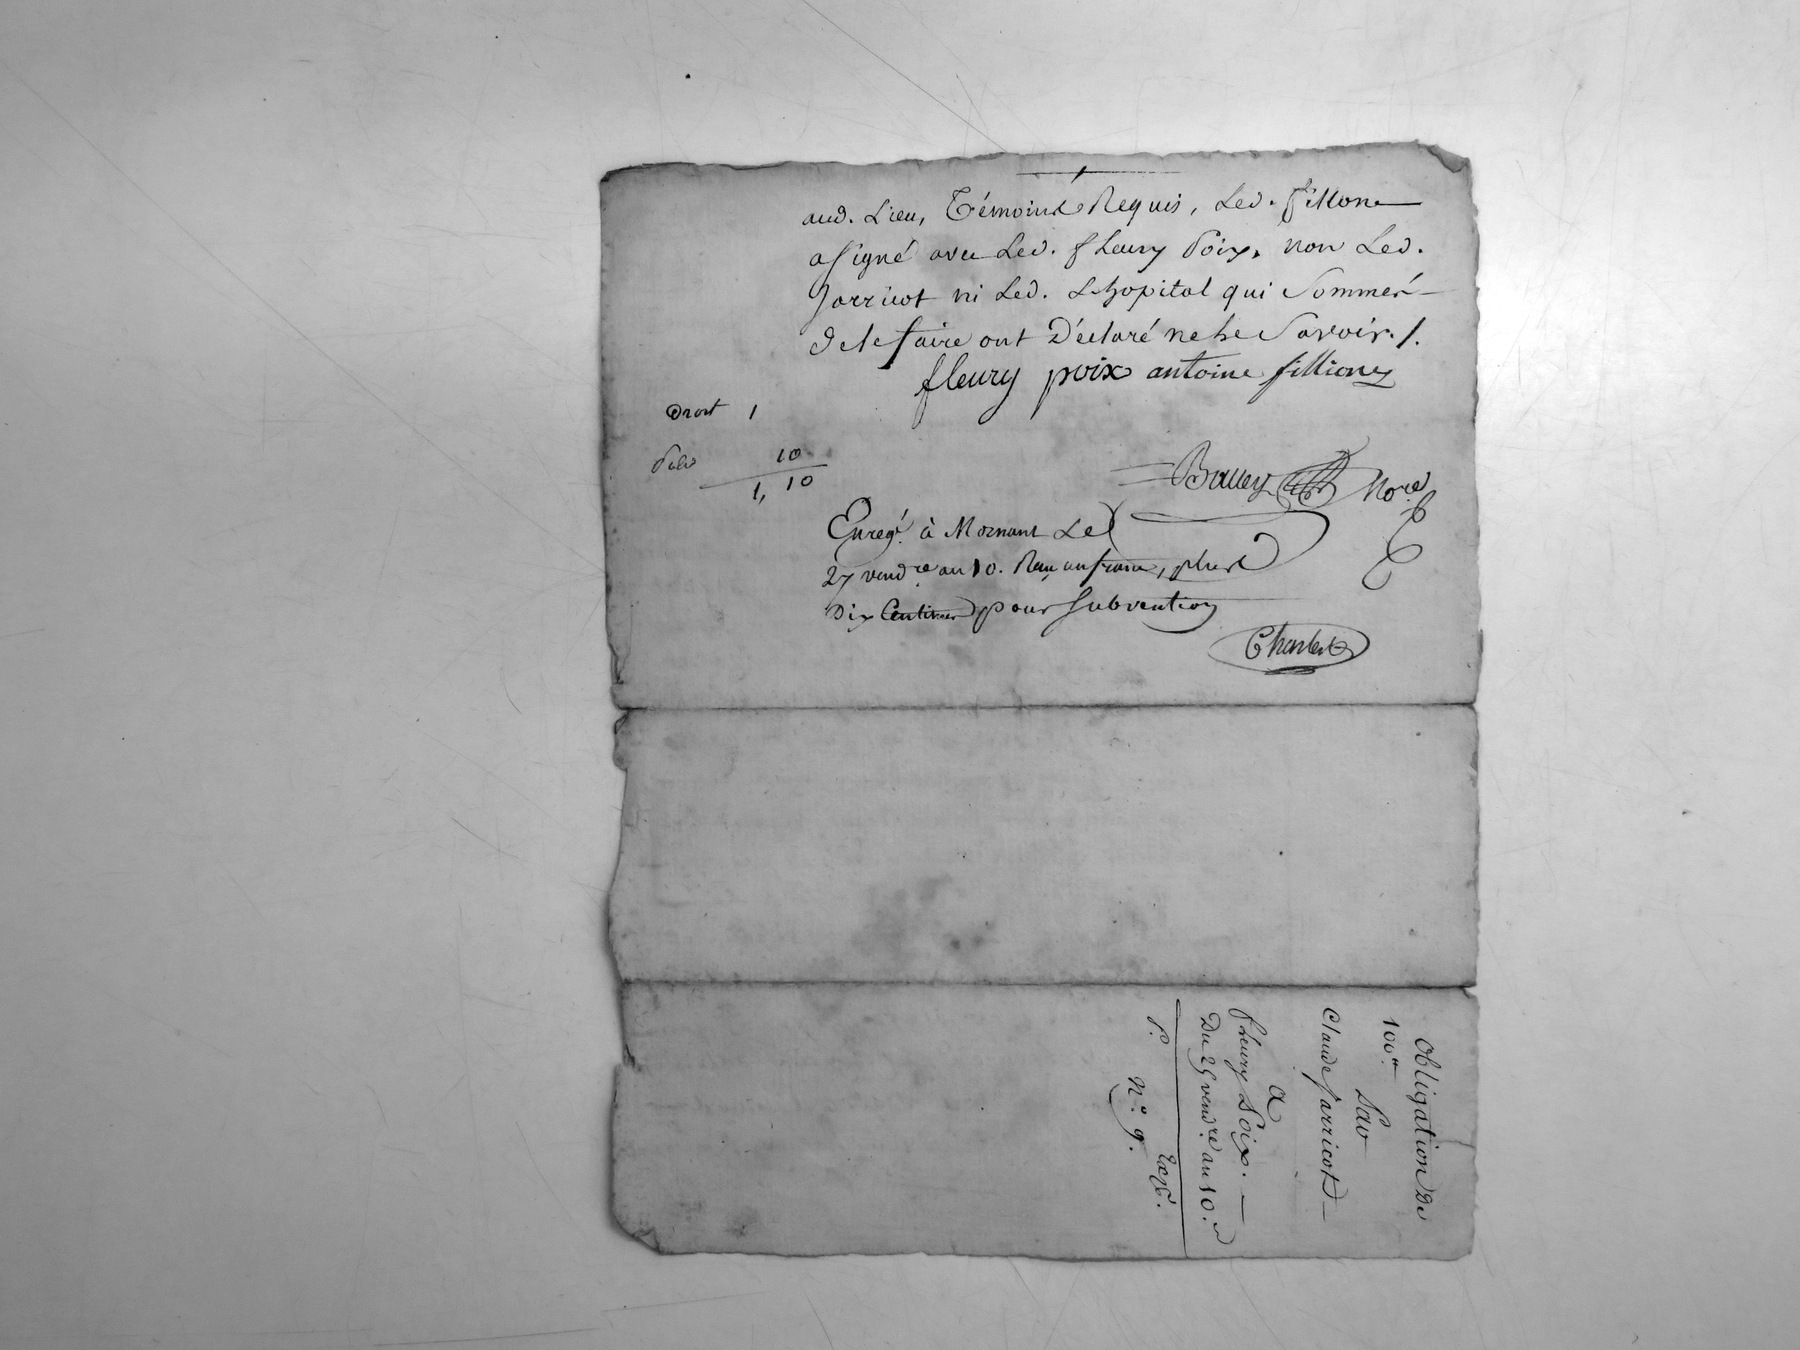 aud. Lieu, Témoins Requis, Led. fillon
a signé avec Led. fleury Poix, non Led.
Jarricot ni Led. Lhopital qui Sommés
de le faire ont Déclaré ne le Savoir ./.
fleury poix antoine fillion
Droit 1
10
1, 10
Nore
Enregé. à Mornant Le
27 vendre. an 10. Reçu un franc, plus
Dix Centimes pour Subvention
Charlet
Obligation De
100tt
Par
Claude Jarricot
a
fleury Poix.
Du 25 vendre. an 10.
P. Expé.
N°. 9.